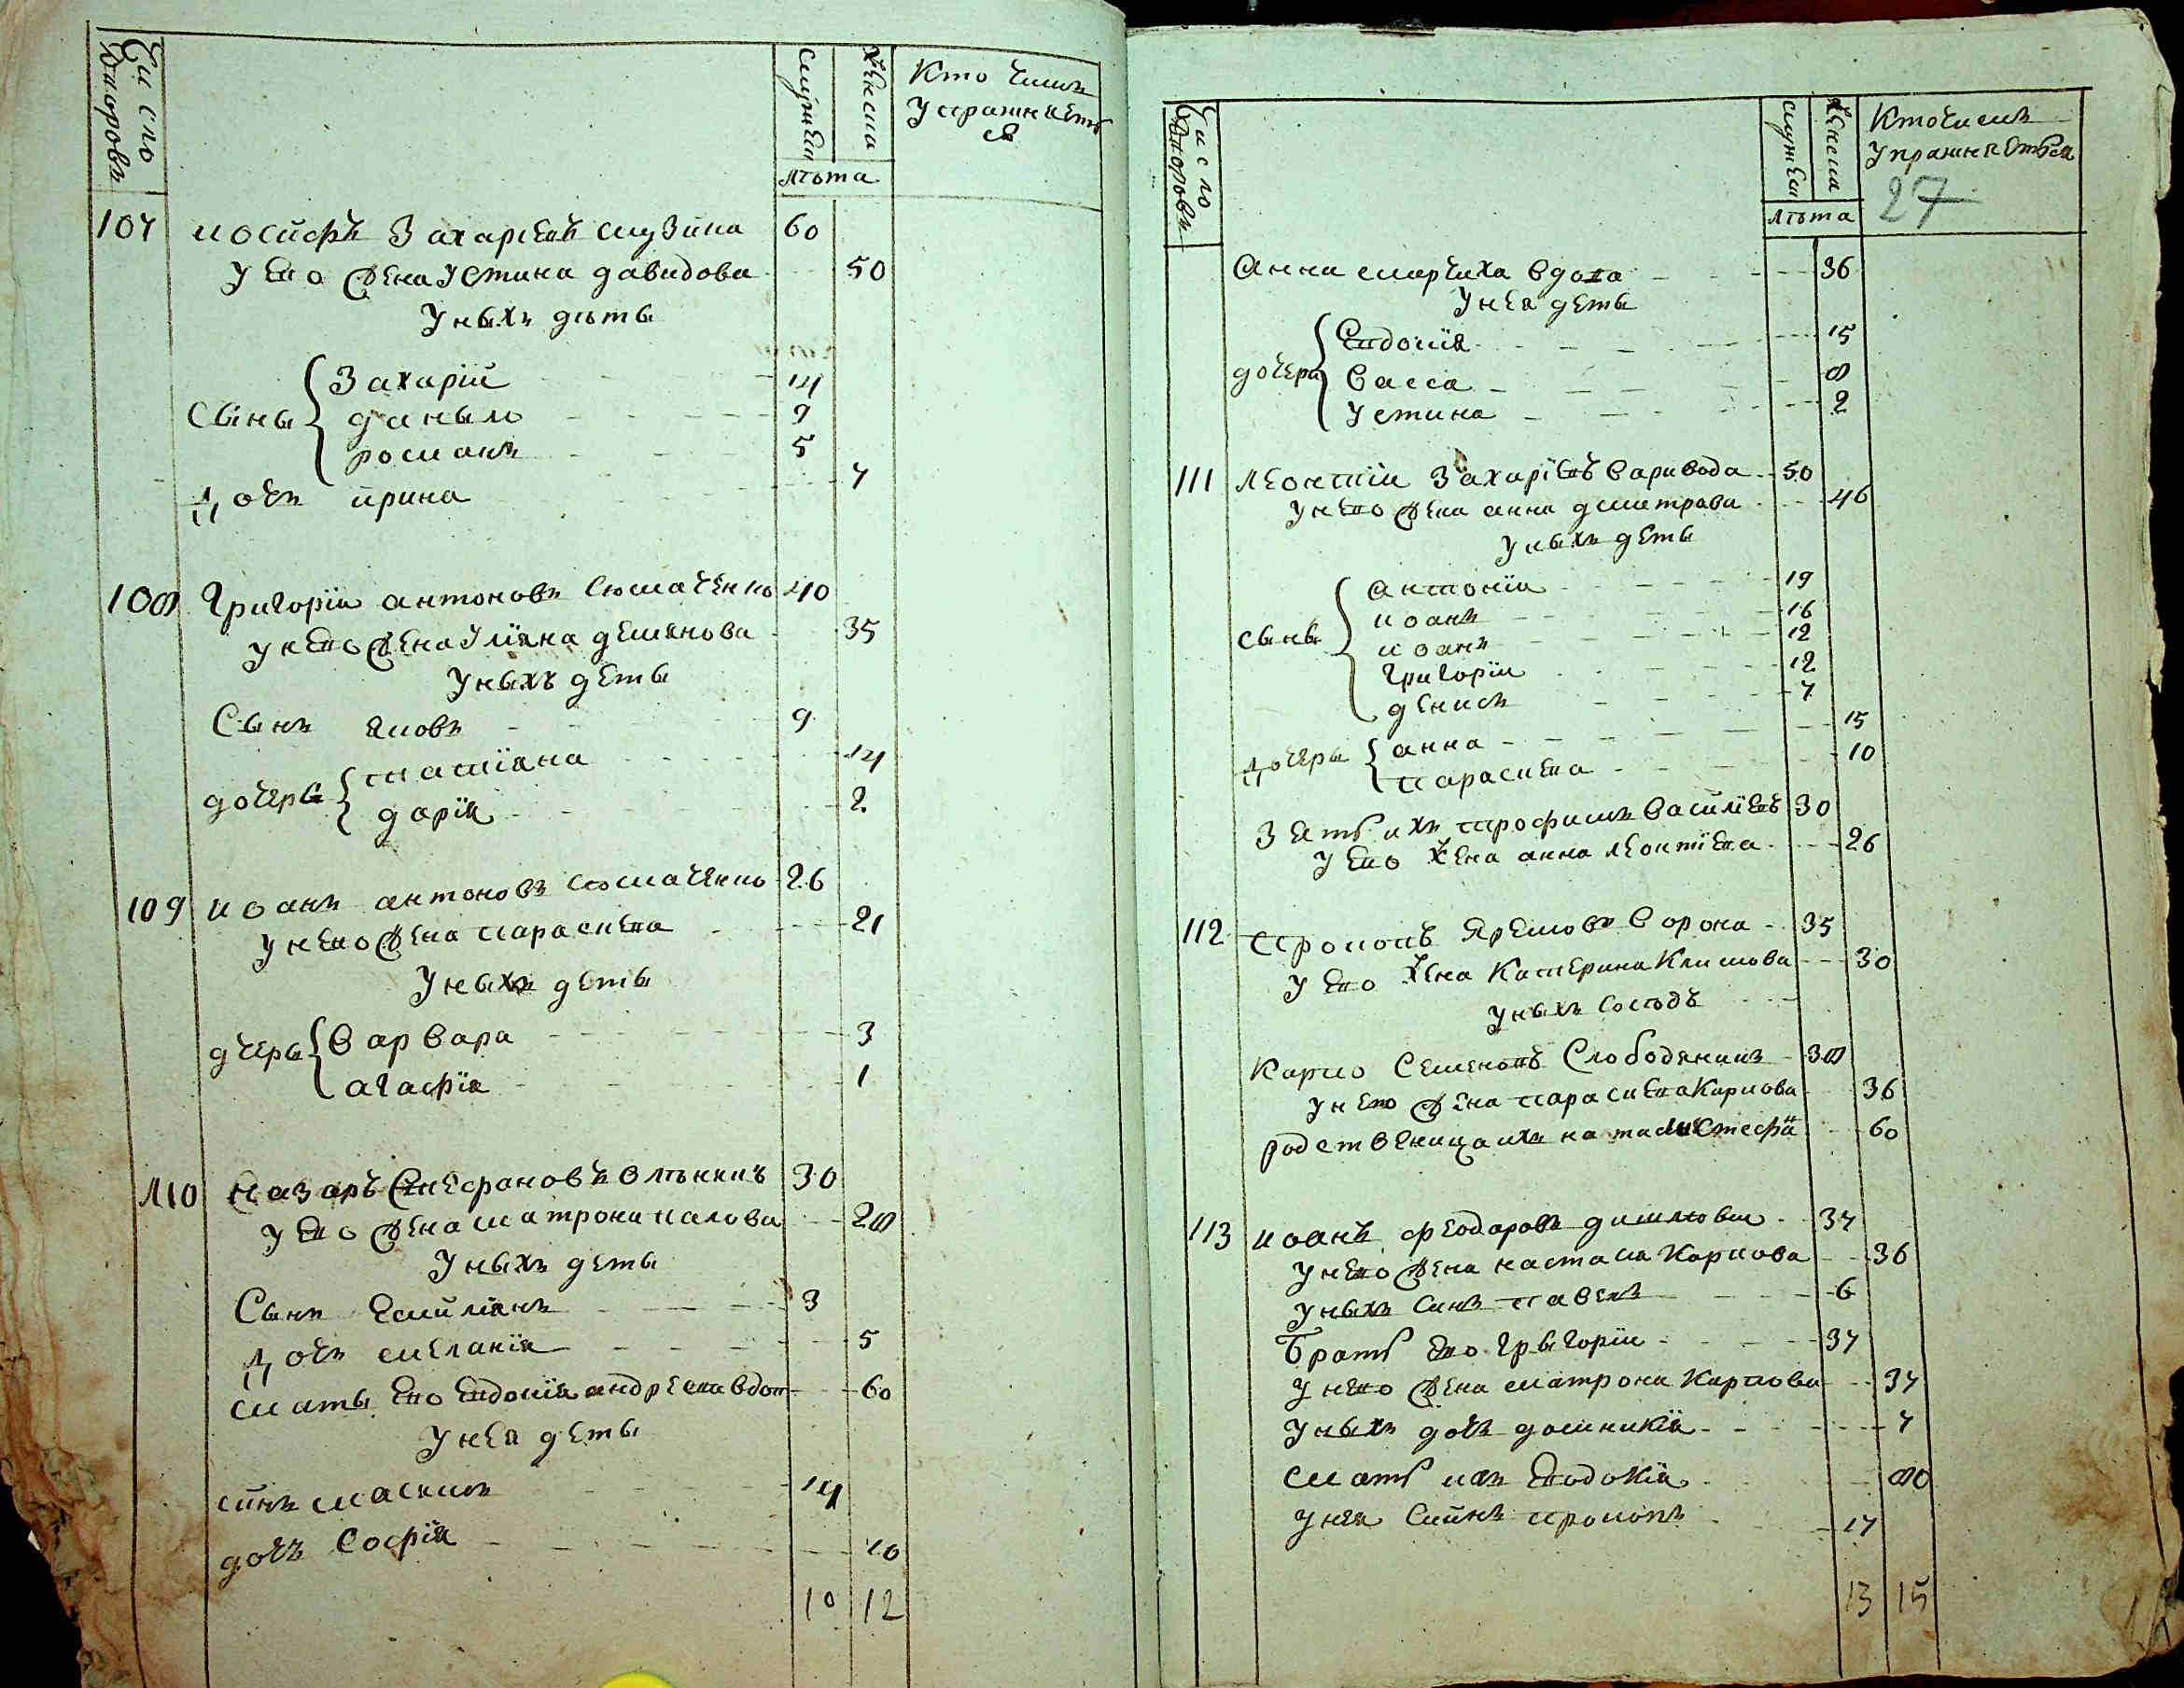 Число дворовъ
мужеска
женска
Кто чимъ упражняеть ся
лѣта
107 иосифъ Захариевъ музика 60
У его жена устина давидова 50
У ныхъ дѣты
Сыны Захарїй 14
даныло 9
романъ 5
Дочъ ирина 7
108 Григорїи антоновъ 40
У него жена Улїяна демянова 35
Уныхъ деты
Сынъ яковъ 9
дочеры татїяна 14
дарїя 2
109 иоанъ антоновъ 26
У него жена параскева 21
Уныхъ деты
дчеры Варвара 3
агафїя 1
110 Назаръ Стефановъ 30
У его жена матрона 28
Уныхъ деты
Сынъ Емилїянъ 3
Дочъ меланїя 5
Маты его Евдокїя андреева вдов 60
Унея деты
синъ максимъ 14
дочъ Софїя 10
10 12
Число дворовъ
мужеска
женска
Кто чимъ упражняеться
27
лѣта
анна марчиха вдова 36
Унея деты
дочеры Евдокїя 15
Васса 8
Устина 2
111 Леонтїи Захарїевъ Варивода 50
Унего жена анна дмитрова 46
Уныхъ деты
Сыны антонїи 19
иоанъ 16
иоанъ 12
Григорїи 12
денисъ 7
Дочеры анна 15
параскева 10
Зять ихъ трофимъ Василїевъ 30
У его жена анна леонтїева 26
112 Прокопъ Яремовъ Ворона 35
У его жена Катерина Климова 30
Уныхъ сосѣдъ
Карпо Семеновъ Слободяникъ 38
Унего жена параскева Карпова 36
родственица ихъ 60
113 иоанъ феодаровъ 37
Унего жена настасия Карпова 36
Уныхъ синъ павелъ 6
Брать его Грыгорїи 37
Унего жена матрона Карпова 34
Уныхъ дочъ домникїя 7
Мать ихъ Евдокїя 80
Унея синъ прокопъ 17
13 15